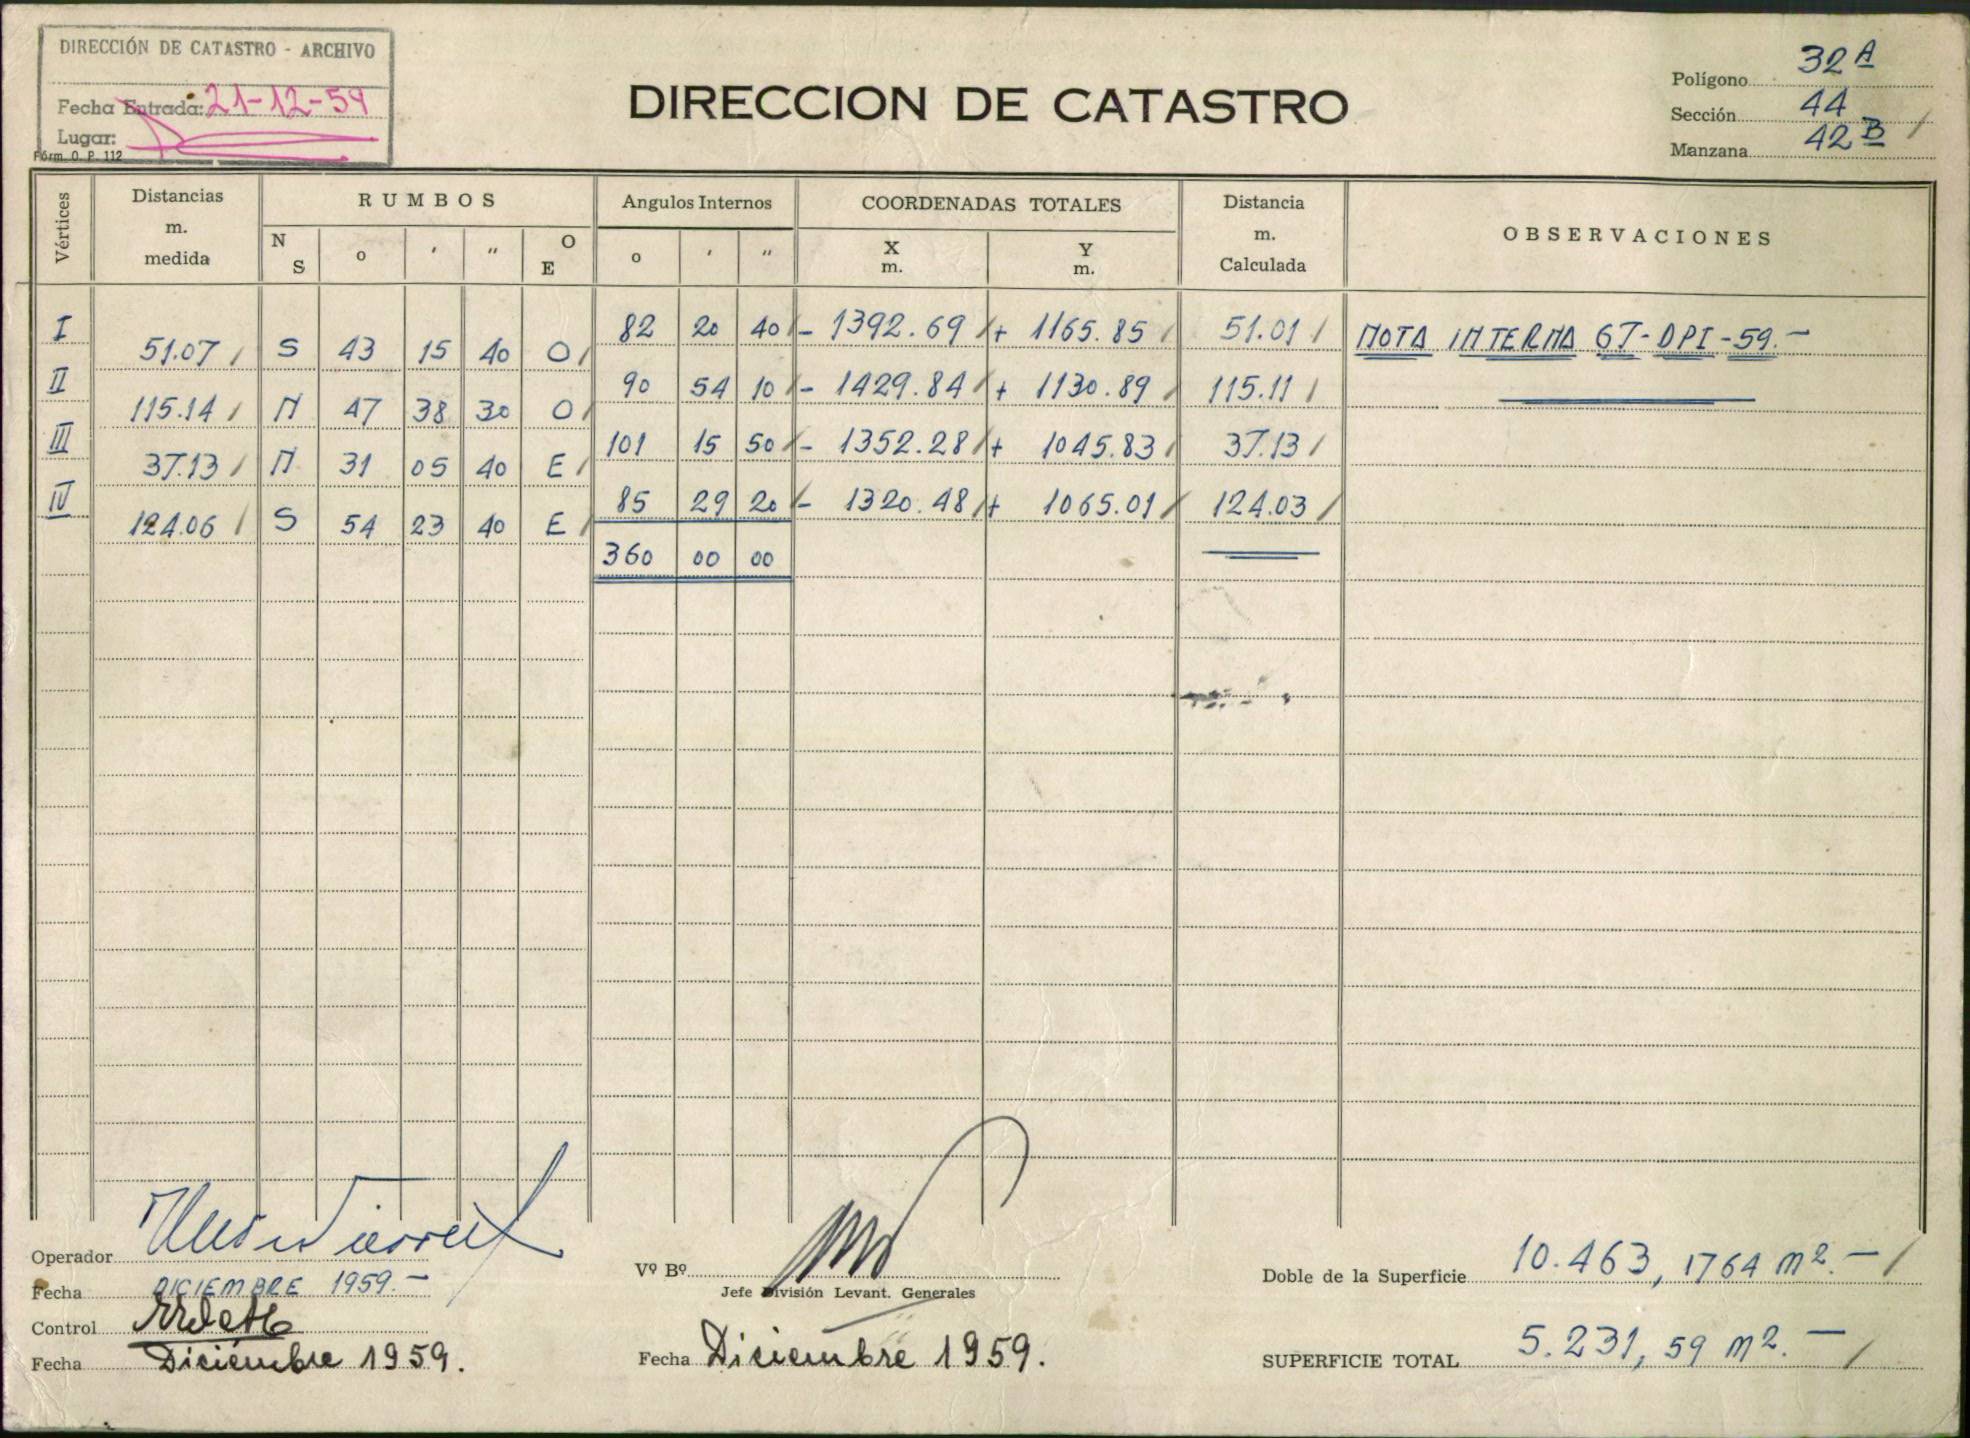 DIRECCIÓN DE CATASTRO - ARCHIVO
Fecha Entrada: 21-12-59
Lugar:
Fórm. O. P. 112
DIRECCION DE CATASTRO
Polígono 32 A
Sección 44
Manzana 42 B
Vértices Distancias m. medida RUMBOS Angulos Internos COORDENADAS TOTALES Distancia m. Calculada OBSERVACIONES
N S o ' " O E o ' " X m. Y m.
I 82 20 40 - 1392.69 + 1165.85 51.01 NOTA INTERNA 67-DPI-59.-
51.07 S 43 15 40 O
II 90 54 10 - 1429.84 + 1130.89 115.11
115.14 N 47 38 30 O
III 101 15 50 - 1352.28 + 1045.83 37.13
37.13 N 31 05 40 E
IV 85 29 20 - 1320.48 + 1065.01 124.03
124.06 S 54 23 40 E
360 00 00
Operador
Fecha DICIEMBRE 1959.-
Control
Fecha Diciembre 1959.
Vº Bº
Jefe División Levant. Generales
Fecha Diciembre 1959.
Doble de la Superficie 10.463,1764 m2.-
SUPERFICIE TOTAL 5.231,59 m2.-